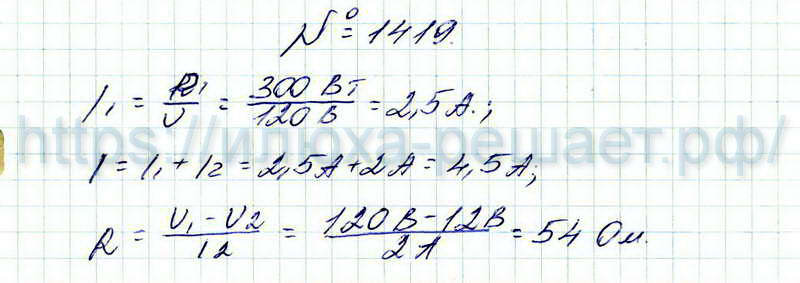 № 1419.
I₁ = P₁/U = 300 Вт/120 В = 2,5 А.;
https://илюха-решает.рф/
I = I₁ + I₂ = 2,5А + 2А = 4,5А;
R = U₁ - U₂/I₂ = 120 В - 12В/2А = 54 Ом.